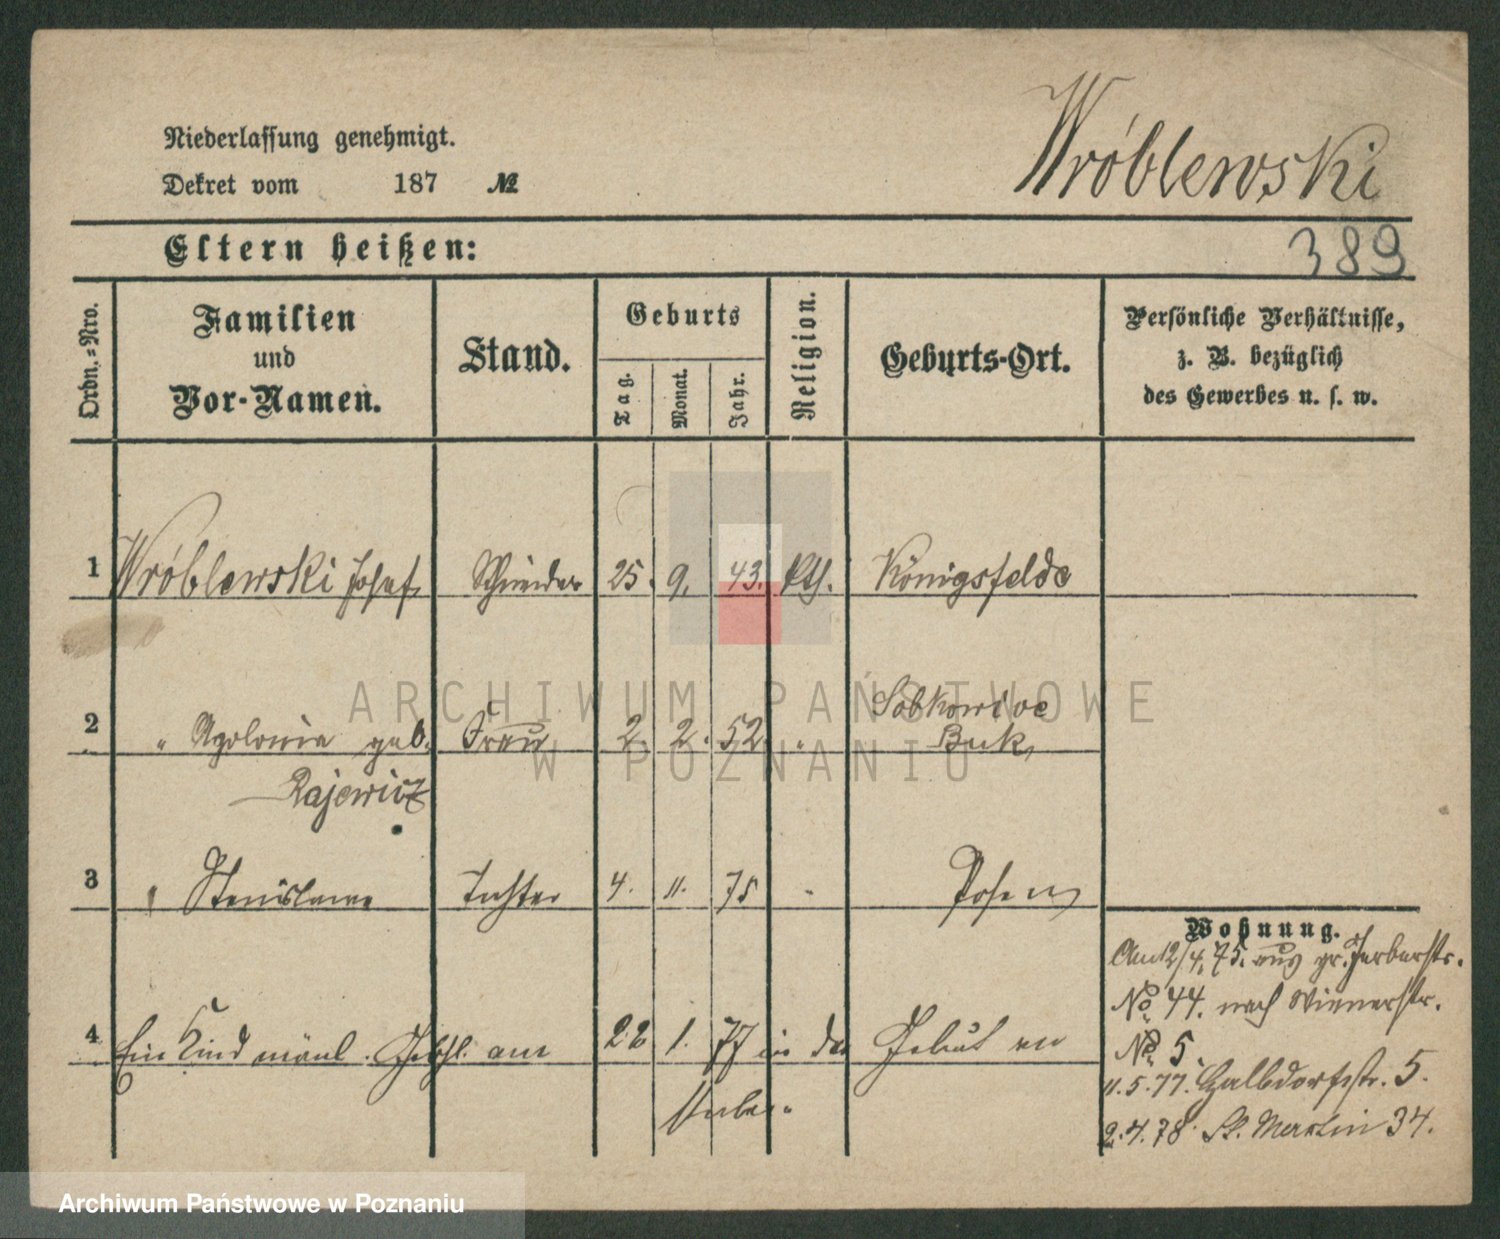 Niederlassung genehmigt.
Dekret vom 187 №
Wróblewski
Eltern heißen:
389
Ordn.=Nro.
Familien
und
Vor-Namen.
Stand.
Geburts
Tag.
Monat.
Jahr.
Religion.
Geburts-Ort.
Persönliche Verhältnisse,
z. B. bezüglich
des Gewerbes u. s. w.
1 Wróblewski Josef Schneider 25. 9. 43. kth. Königsfelde
2 " Apolonia geb. Frau 2. 2. 52 " Sobkowice Buk
Rajewicz
3 " Stanislawa Tochter 4. 11. 75 " Posen
4 Ein Kind männl. Geschl. am 22 1. 77 in der Geburt
Wohnung.
Am 12/4. 75. aus gr. Gerberstr.
No. 44. nach Wienerstr.
No. 5.
11.5.77. Halbdorfstr. 5.
2.4.78 St. Martin 34.
ARCHIWUM PAŃSTWOWE
W POZNANIU
Archiwum Państwowe w Poznaniu